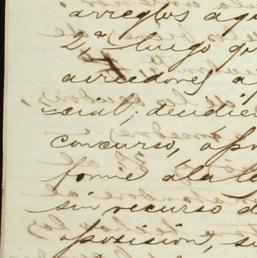 arreglos aqu
2ª luego qu
acreedores a
cial; deudien
concurso, apr
forme á la le
sin recurso d
oposision, se